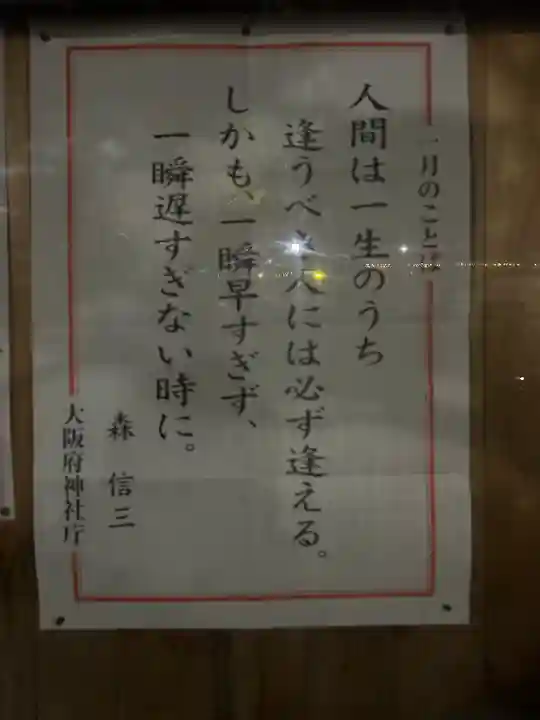 月のことば
人間は一生のうち
逢うべき人には必ず逢える。
しかも、一瞬早すぎず、
一瞬遅すぎない時に。
森 信三
大阪府神社庁